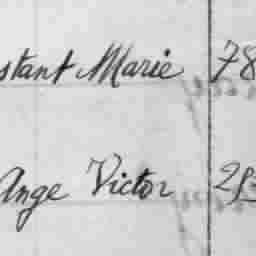 stant Marie 78
Ange Victor